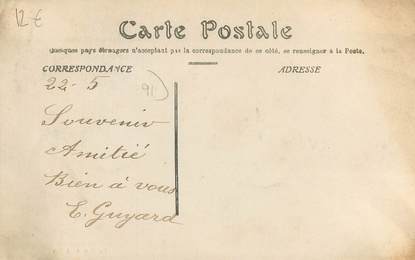 12 €
Carte Postale
Quelques pays étrangers n'acceptant pas la correspondance de ce côté, se renseigner à la Poste.
CORRESPONDANCE
ADRESSE
22-5
911
Souvenir
Amitié
Bien à vous
E. Guyard